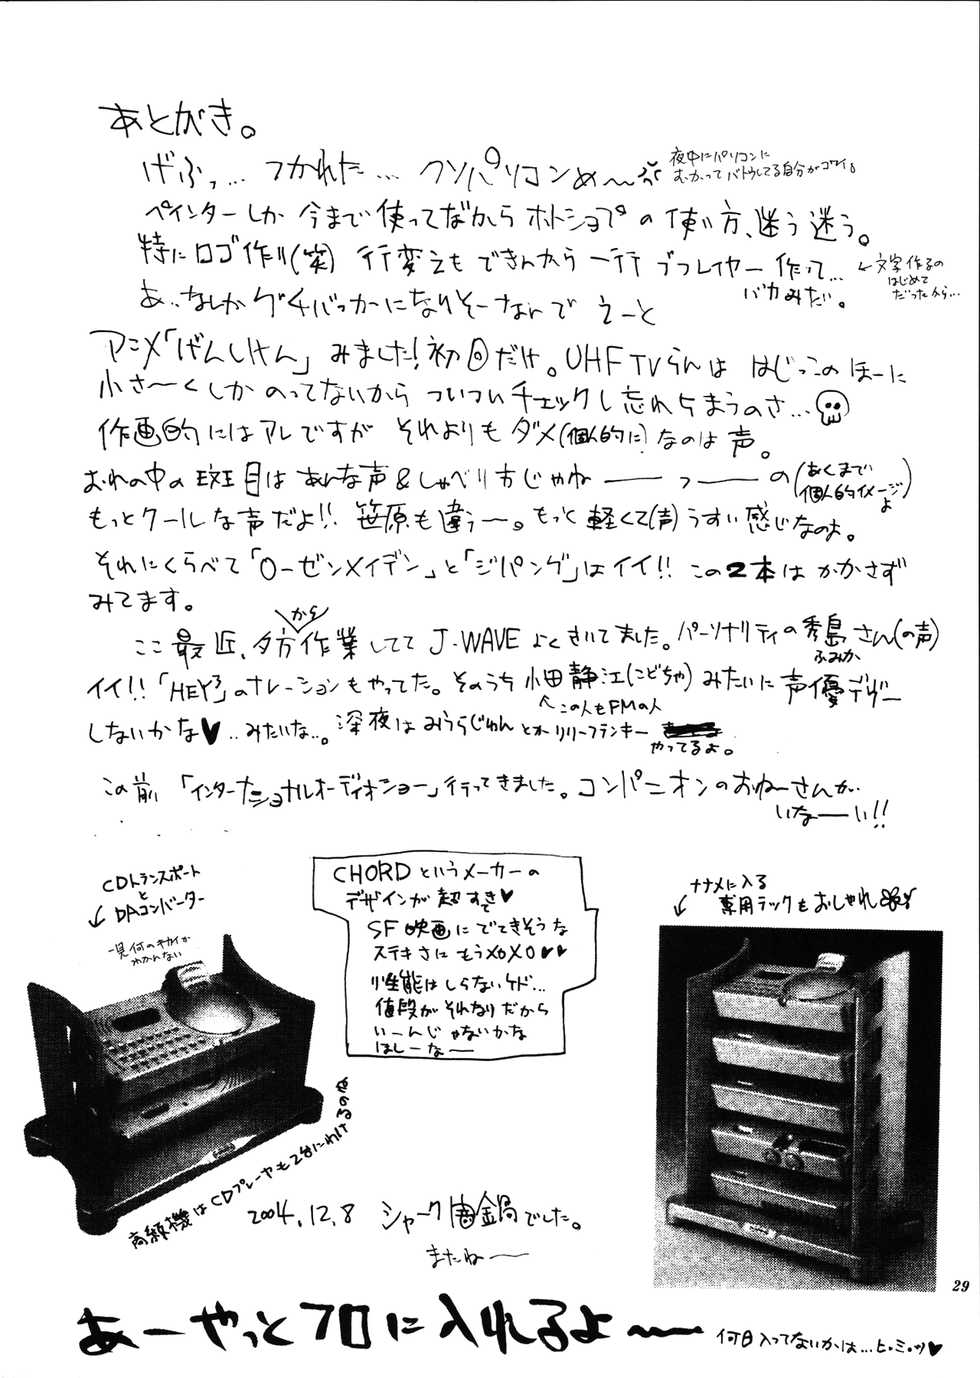 あとがき。
げふっ… つかれた… クソパソコンめ〜
夜中にパソコンに
むかってバトウしてる自分がコワイ。
ペインターしか今まで使ってなかったからホトショプの使い方、迷う迷う。
特にロゴ作り(笑) 行変えもできんから一行ずつレイヤー作って…
バカみたい。
←文字作るの
はじめて
だったから…
あ…なんかグチばっかになりそーなんで えーと
アニメ「げんしけん」みました!初回だけ。UHF TVらんは はじっこのほーに
小さ〜くしかのってないから ついついチェックし忘れちまうのさ…
作画的にはアレですが それよりもダメ(個人的に)なのは声。
おれの中の斑目はあんな声&しゃべり方じゃねーっーの(あくまで
個人的イメージ
よ)
もっとクールな声だよ!! 笹原も違うー。もっと軽くて(声)うすい感じなのよ。
それにくらべて「ローゼンメイデン」と「ジパング」はイイ!! この2本はかかさず
みてます。
ここ最近、夕方から作業してて J-WAVEよくきいてました。パーソナリティの秀島さん(の声)
ふみか
イイ!!「HEY³」のナレーションもやってた。そのうち小田静江(こどちゃ)みたいに声優デヴュー
↖この人もFMの人
しないかな♥…みたいな…。深夜はみうらじゅんとかリリーフランキー
やってるよ。
この前「インターナショナルオーディオショー」行ってきました。コンパニオンのおねーさんが
いなーい!!
CDトランスポート
と
DAコンバーター
一見何のキカイか
わかんない
CHORDというメーカーの
デザインが超すてき♥
SF映画にでてきそうな
ステキさにもうメロメロ♥♥
性能はしらないケド…
値段がそれなりだから
いーんじゃないかな
ほしーなー
ナナメに入る
専用ラックもおしゃれ
高級機はCDプレーヤも2台にわけてるのね
2004.12.8 シャーク鍋でした。
またねー
29
あーやっとフロに入れるよ〜
何日入ってないかは…ヒ・ミ・ツ♥